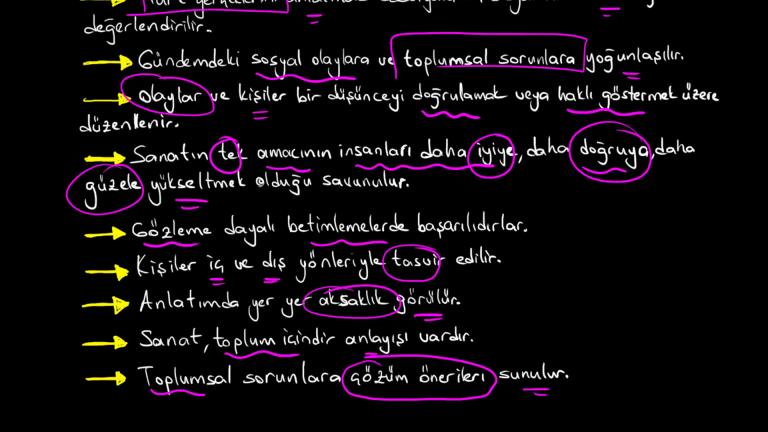 değerlendirilir.
Gündemdeki sosyal olaylara ve toplumsal sorunlara yoğunlaşılır.
Olaylar ve kişiler bir düşünceyi doğrulamak veya haklı göstermek üzere
düzenlenir.
Sanatın tek amacının insanları daha iyiye, daha doğruya, daha
güzele yükseltmek olduğu savunulur.
Gözleme dayalı betimlemelerde başarılıdırlar.
Kişiler iç ve dış yönleriyle tasvir edilir.
Anlatımda yer yer aksaklık görülür.
Sanat, toplum içindir anlayışı vardır.
Toplumsal sorunlara çözüm önerileri sunulur.